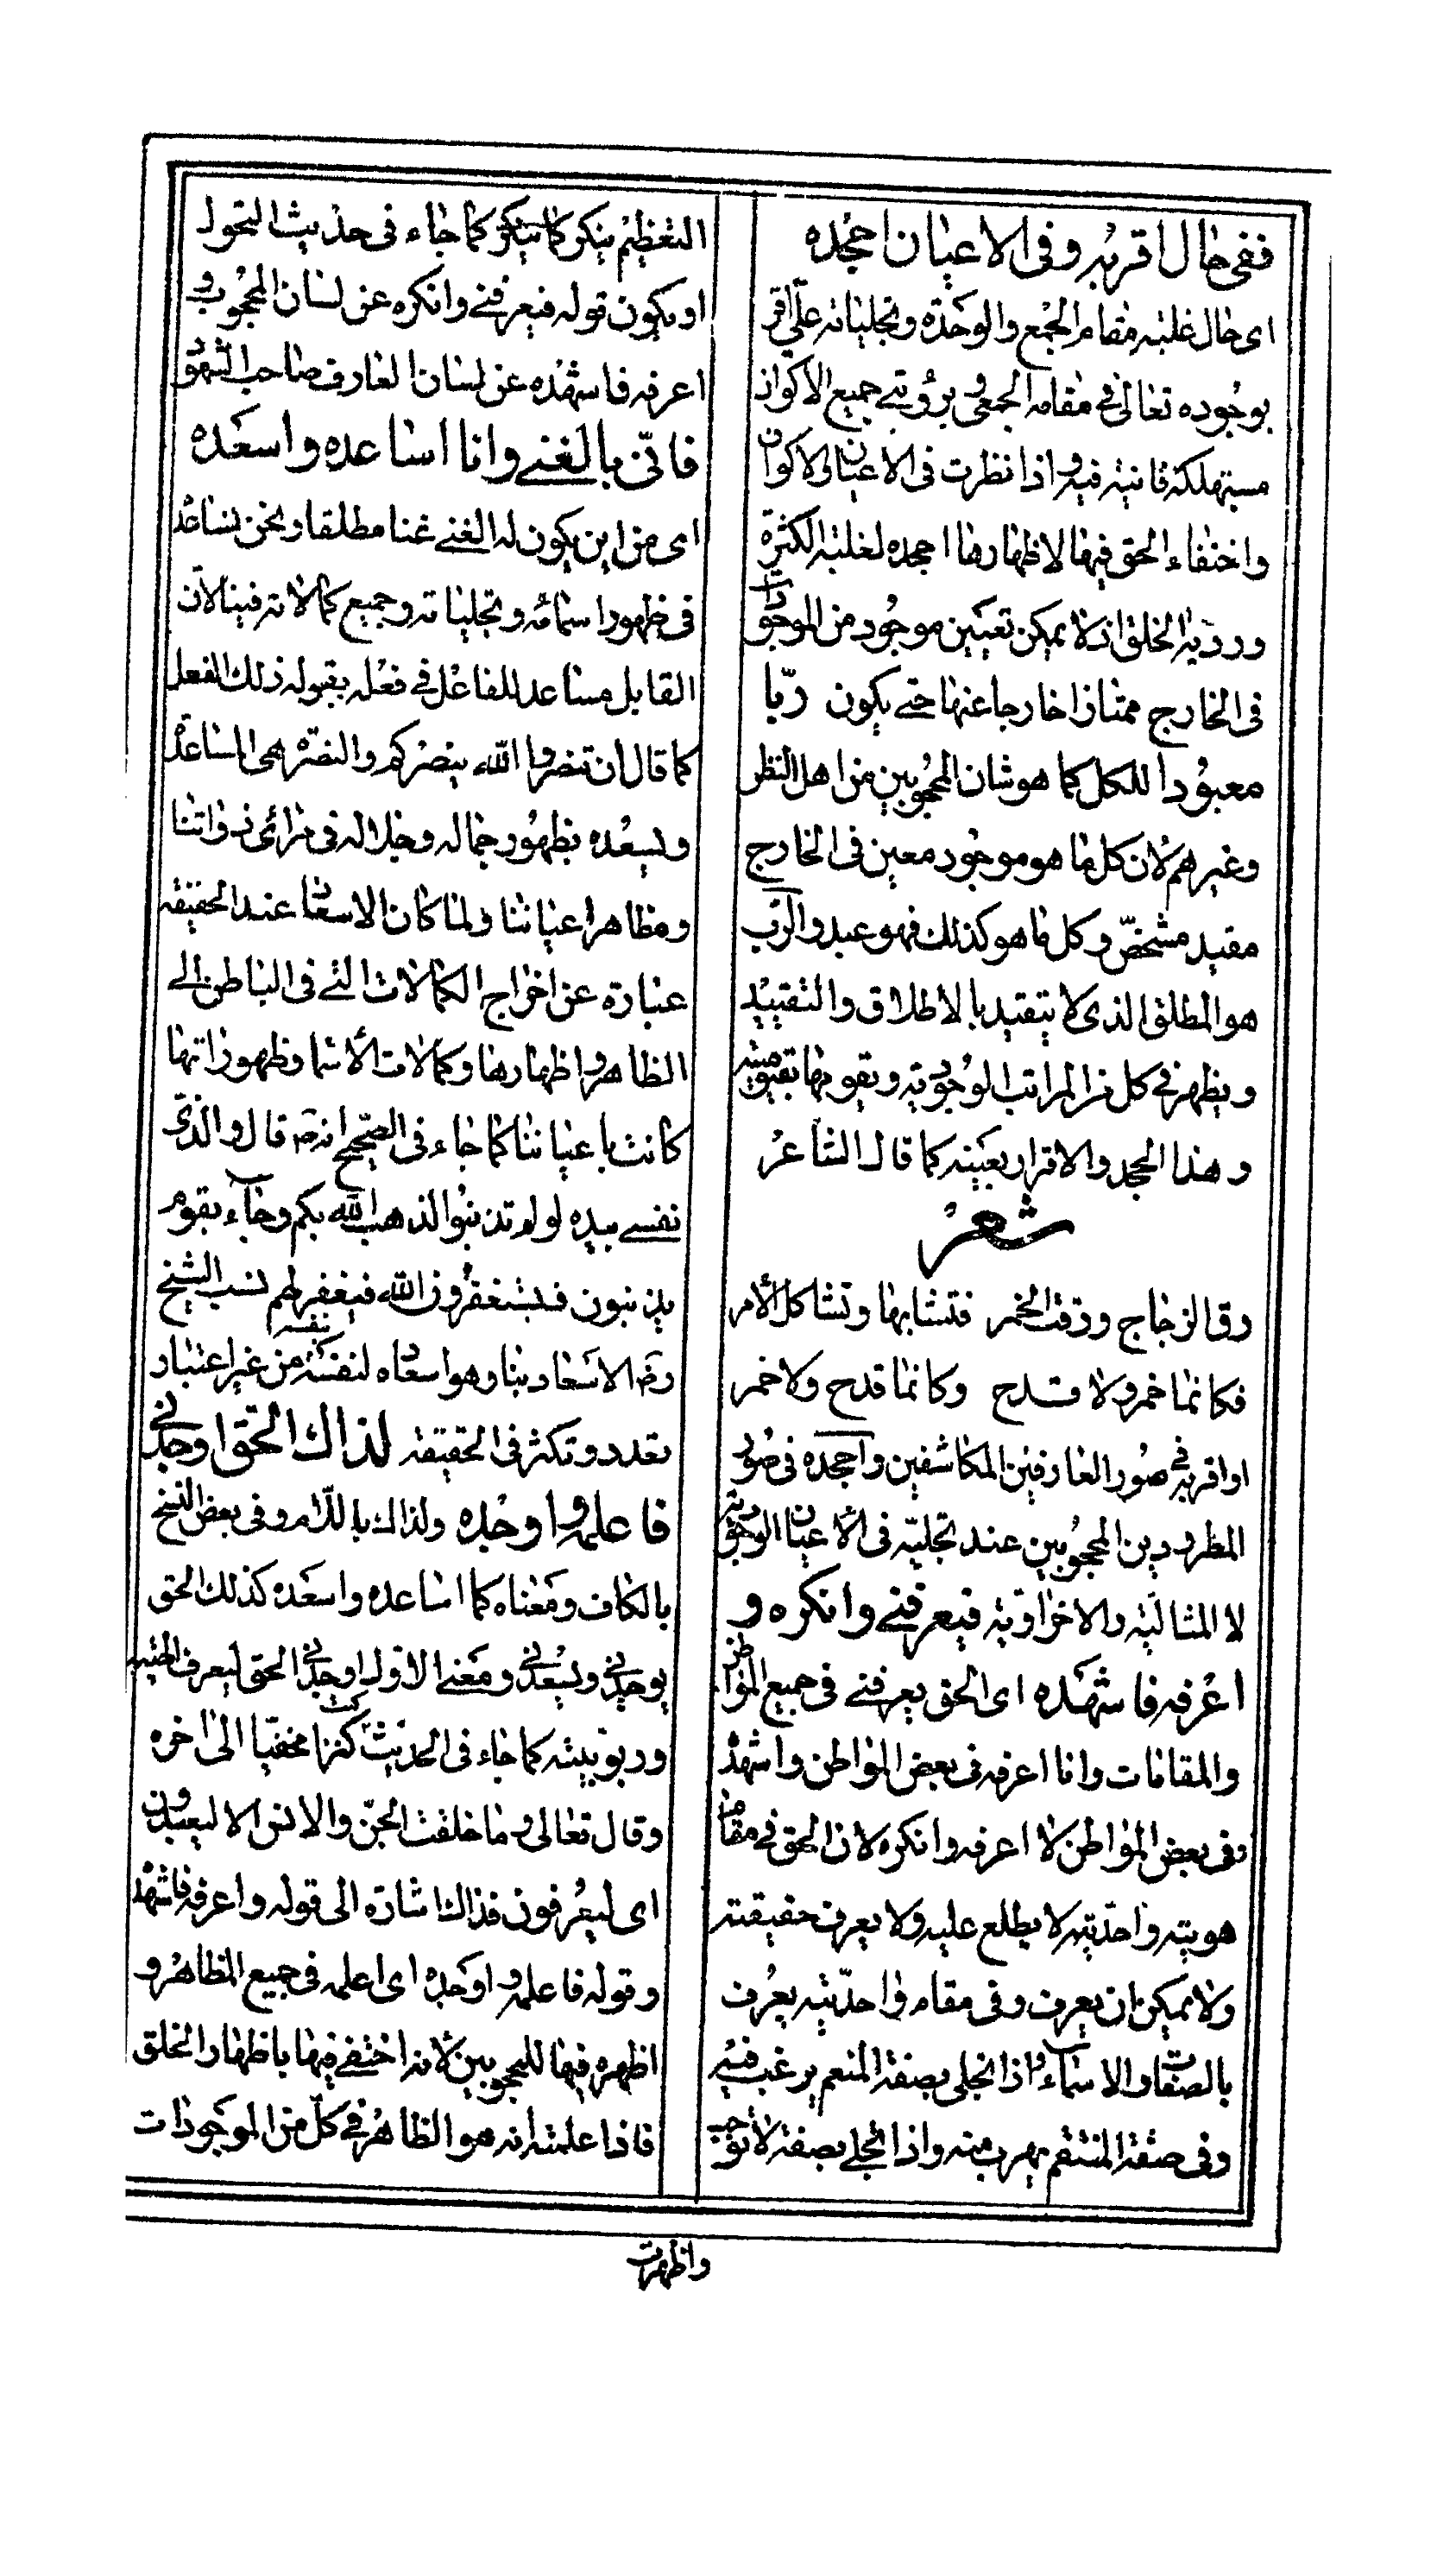 ففى حال اقر به وفى الاعيان اجحده
اى حال غلبة مقام الجمع والوحدة وتجلياته علىّ اقر
بوجوده تعالى فى مقامه الجمعى وبرؤيتى جميع الاكوان
مستهلكة فانية فيه واذا نظرت فى الاعيان والاكوان
واختفاء الحق فيها لاظهارها اجحده لغلبة الكثرة
ورؤية الخلق اذ لا يمكن تعيين موجود من الموجودات
فى الخارج ممتازا خارجا عنها حتى يكون ربّا
معبودا للكل كما هو شان المحجوبين من اهل النظر
وغيرهم لان كل ما هو موجود معين فى الخارج
مقيد مشخّص وكل ما هو كذلك فهو عبد والرّب
هو المطلق الذى لا يتقيد بالاطلاق والتقييد
ويظهر فى كل من المراتب الوجودية ويقومها بقيوميته
وهذا الجحد والاقرار بعينه كما قال الشاعر
شعر
رق الزجاج ورقت الخمر فتشابها وتشاكل الأمر
فكانما خمر ولا قدح وكانما قدح ولا خمر
او اقر به فى صور العارفين المكاشفين واجحده فى صور
المطرودين المحجوبين عند تجليه فى الأعيان الوجودية
لا المثالية والاخراوية فيعرفنى وانكره و
اعرفه فاشهده اى الحق يعرفنى فى جميع المواطن
والمقامات وانا اعرفه فى بعض المواطن واشهده
وفى بعض المواطن لا اعرفه وانكره لان الحق فى مقام
هويته واحديته لا يطلع عليه ولا يعرف حقيقته
ولا يمكن ان يعرف وفى مقام واحديته يعرف
بالصفات والاسماء واذا تجلى بصفة المنعم يرغب فيه
وفى صفة المنتقم يهرب منه واذا تجلى بصفة لا توجب
التعظيم ينكر كما ينكر كما جاء فى حديث التحول
او يكون قوله فيعرفنى وانكره عن لسان المحجوب و
اعرفه فاشهده عن لسان العارف صاحب الشهود
فانّى بالغنى وانا اساعده واسعده
اى من اين يكون له الغنى غنا مطلقا ونحن نساعده
فى ظهور اسمائه وتجلياته وجميع كمالاته فينا لأن
القابل مساعد للفاعل فى فعله بقبوله ذلك الفعل
كما قال ان تنصروا الله ينصركم والنصرة هى المساعدة
ونسعده بظهور جماله وجلاله فى مرائى ذواتنا
ومظاهر اعياننا ولما كان الاسعاد عند الحقيقة
عبارة عن اخراج الكمالات التى فى الباطن الى
الظاهر واظهارها وكمالات الأسما وظهوراتها
كانت باعياننا كما جاء فى الصحيح انه ص قال والذى
نفسى بيده لو لم تذنبوا لذهب الله بكم وجاء بقوم
يذنبون فيستغفرون الله فيغفر لهم نسب الشيخ
رض الاسعاد بنا وهو اسعاده لنفسه بنفسه من غير اعتبار
تعدد وتكثر فى الحقيقة لذاك الحق اوجدنى
فاعلمه واوجده ولذاك باللّام وفى بعض النسخ
بالكاف ومعناه كما اساعده واسعده كذلك الحق
يوجدنى ويسعدنى ومعنى الاول اوجدنى الحق ليعرف الهيته
وربوبيته كما جاء فى الحديث كنت كنزا مخفيا الى اخره
وقال تعالى وما خلقت الجنّ والانس الا ليعبدون
اى ليعرفون فذاك اشارة الى قوله واعرفه فاشهده
وقوله فاعلمه واوجده اى اعلمه فى جميع المظاهر و
اظهره فيها للمحجوبين لأنه اختفى فيها باظهار الخلق
فاذا علمت انه هو الظاهر فى كلّ من الموجودات
واظهرت